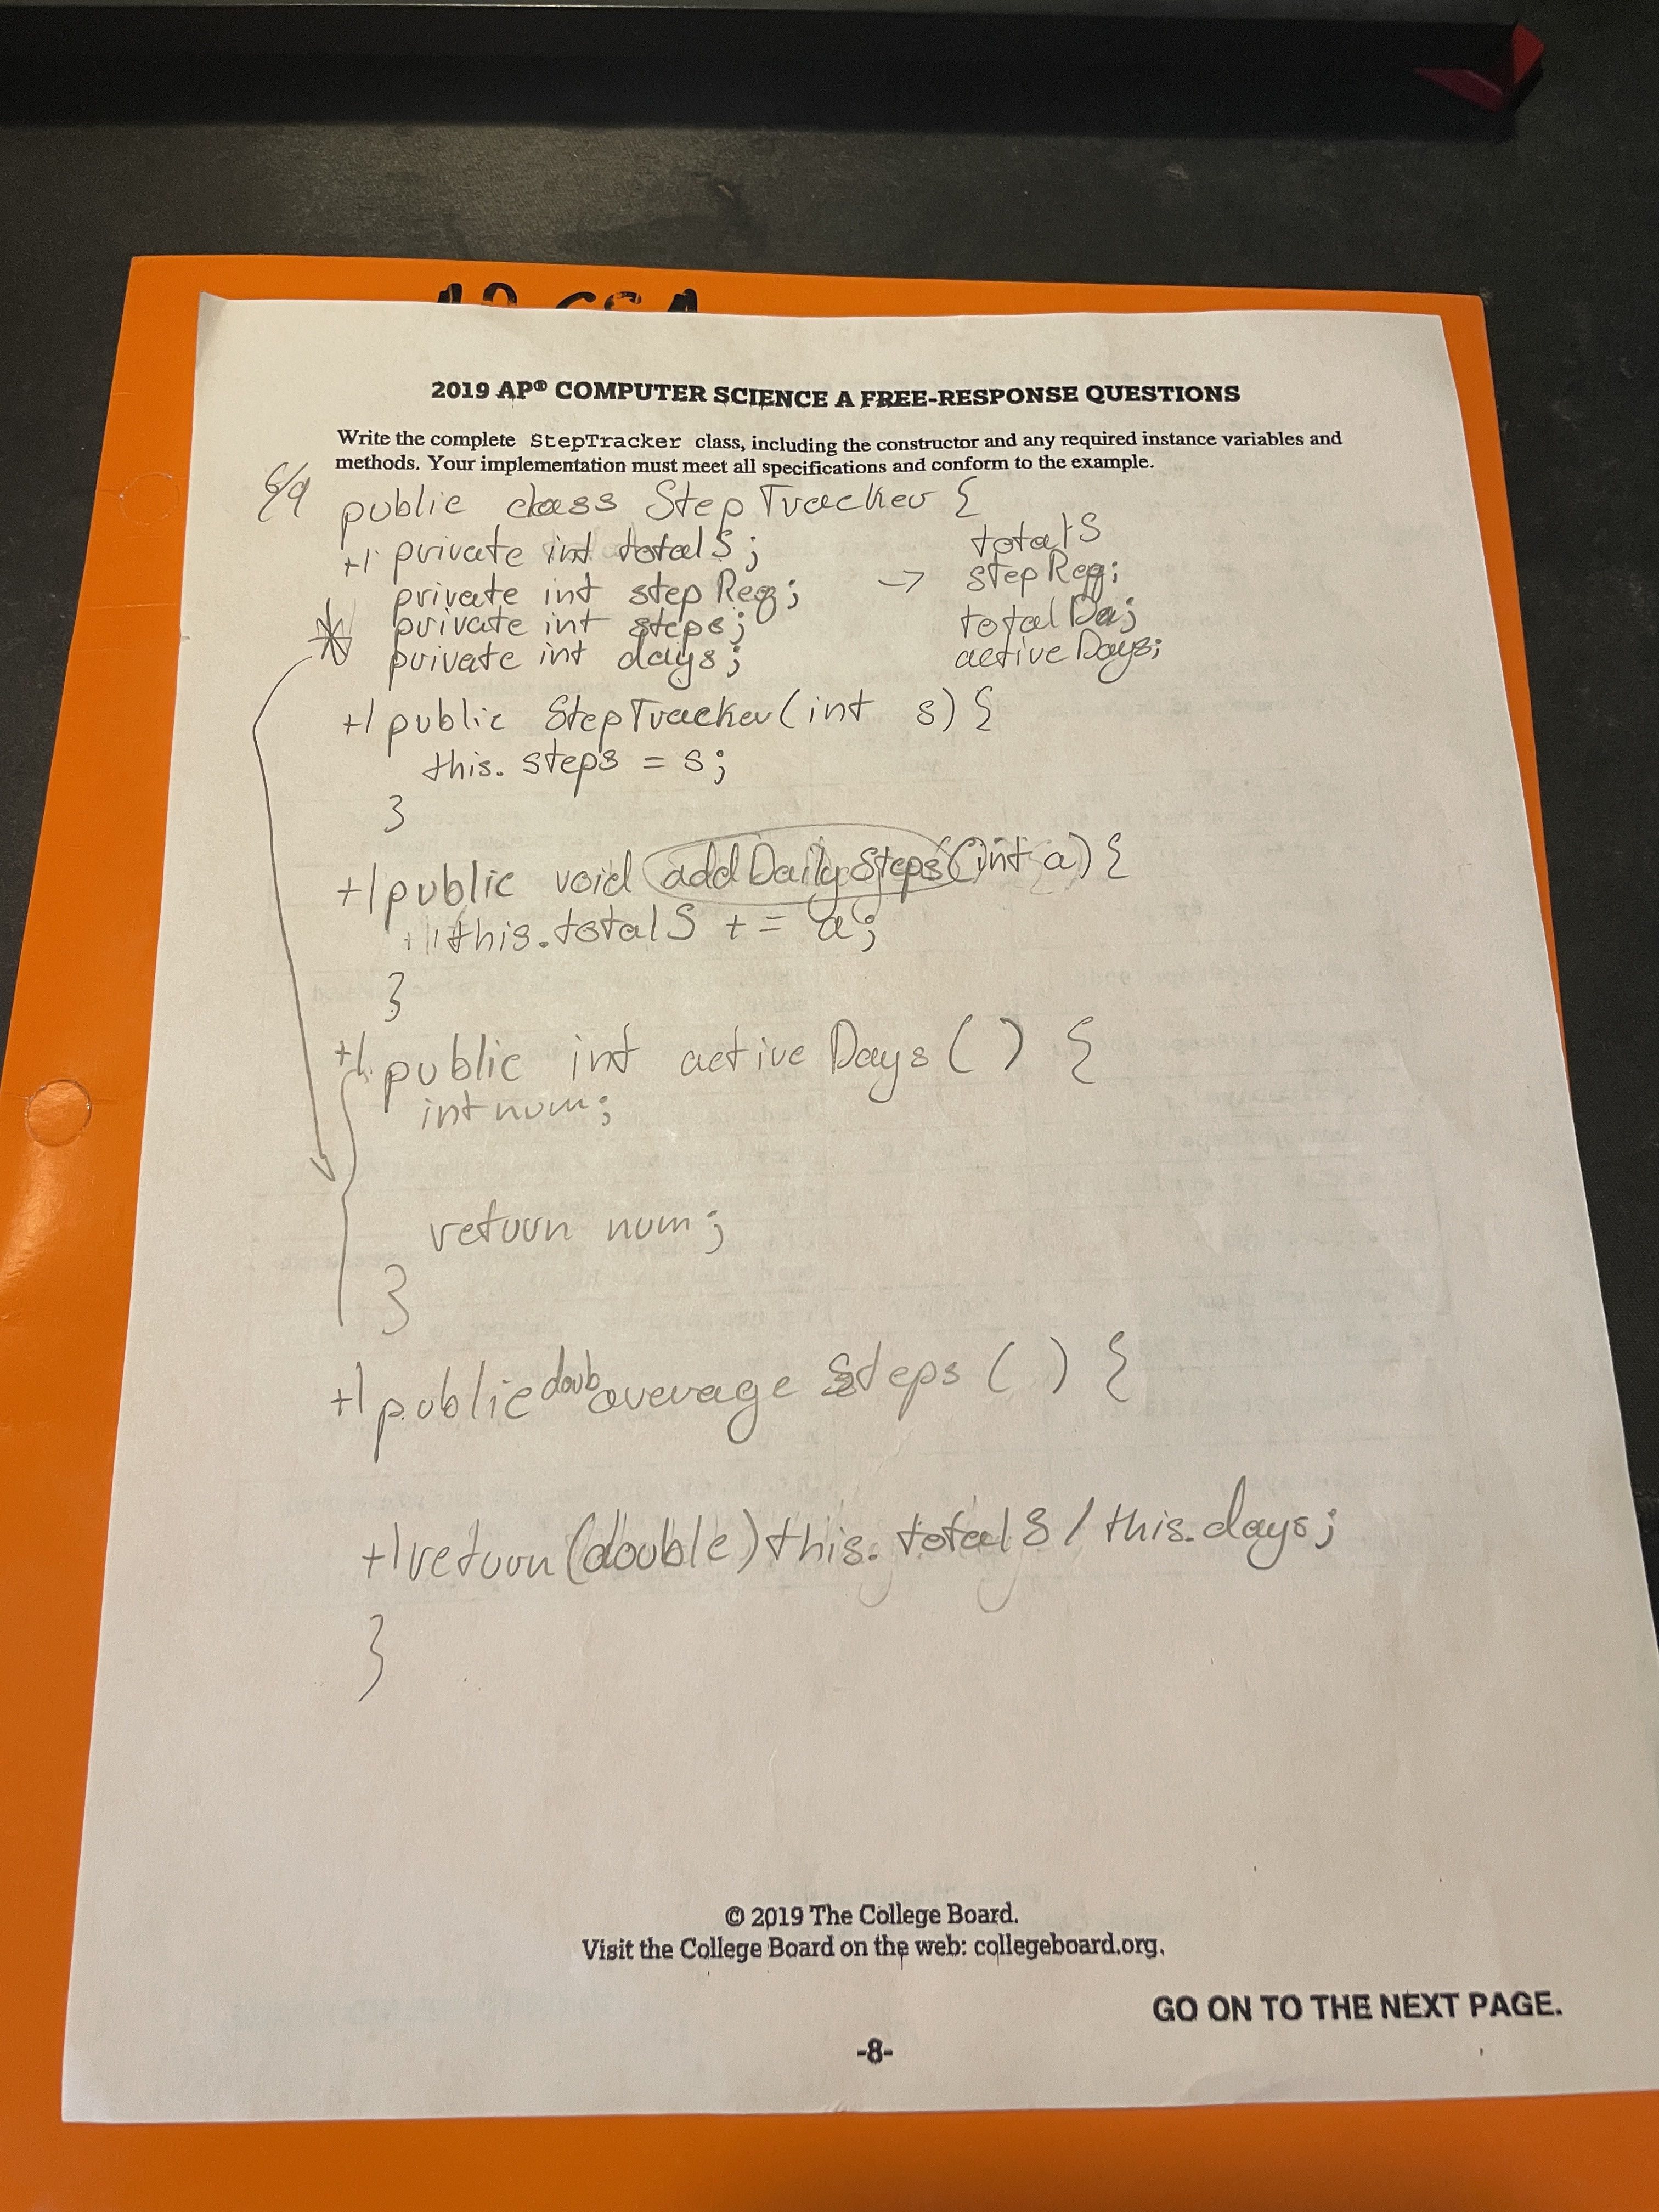 AP CSA
2019 AP® COMPUTER SCIENCE A FREE-RESPONSE QUESTIONS
Write the complete StepTracker class, including the constructor and any required instance variables and
methods. Your implementation must meet all specifications and conform to the example.
6/9 public class StepTracker {
+1 private int totalS; totalS
private int stepReq; → stepReq;
private int steps; totalDa;
private int days; activeDays;
+1 public StepTracker(int s) {
this.steps = s;
}
+1 public void addDailySteps(int a) {
+1 this.totalS += a;
}
+1 public int activeDays() {
int num;
return num;
}
+1 public doub average Steps() {
+1 return (double) this.totalS / this.days;
}
© 2019 The College Board.
Visit the College Board on the web: collegeboard.org.
GO ON TO THE NEXT PAGE.
-8-